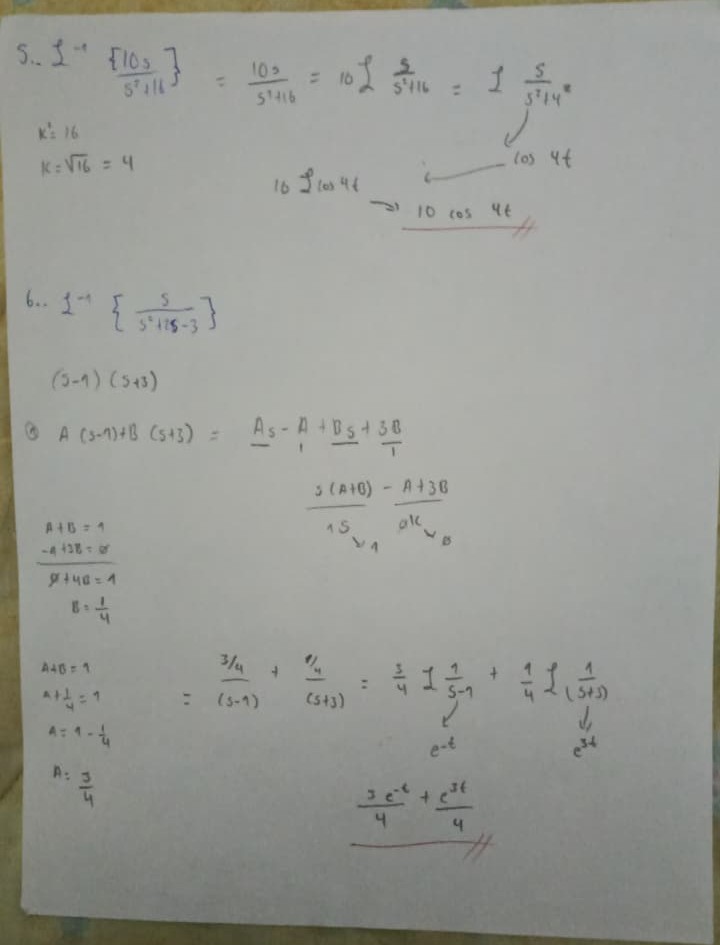 5.. ℒ⁻¹ {10s / s²+16} = 10s / s²+16 = 10 ℒ s / s²+16 = ℒ s / s²+4²
K² = 16
K = √16 = 4
cos 4t
10 ℒ cos 4t → 10 cos 4t
6.. ℒ⁻¹ { s / s²+2s-3 }
(s-1) (s+3)
A (s-1)+B (s+3) = As - A + Bs + 3B
s(A+B) - A+3B
1s ↘ 1 0k ↘ 0
A+B = 1
-A+3B = 0
0+4B = 1
B = 1/4
A+B = 1
A+1/4 = 1
A = 1 - 1/4
A = 3/4
= 3/4 / (s-1) + 1/4 / (s+3) = 3/4 ℒ 1 / s-1 + 1/4 ℒ 1 / (s+3)
e^-t e^3t
3e^-t / 4 + e^3t / 4